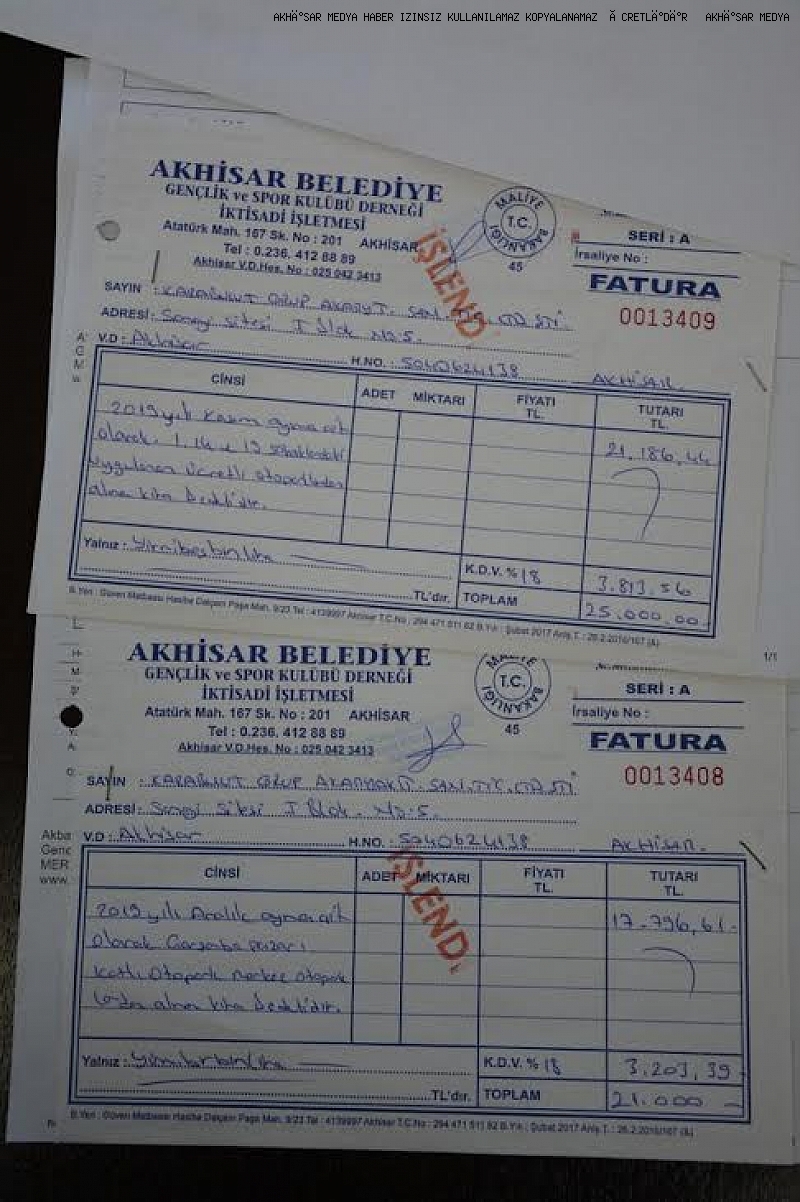 AKHÄ°SAR MEDYA HABER IZINSIZ KULLANILAMAZ KOPYALANAMAZ Ä CRETLÄ°DÄ°R AKHÄ°SAR MEDYA
AKHİSAR BELEDİYE
GENÇLİK ve SPOR KULÜBÜ DERNEĞİ
İKTİSADİ İŞLETMESİ
Atatürk Mah. 167 Sk. No : 201 AKHİSAR
Tel : 0.236. 412 88 89
Akhisar V.D.Hes. No : 025 042 3413
MALİYE BAKANLIĞI
T.C.
45
İŞLENDİ
SERİ : A
İrsaliye No :
FATURA
0013409
SAYIN : KARABULUT GRUP AKARYT. SAN. TİC LTD ŞTİ.
ADRESİ: Sanayi Sitesi I Blok No:5.
V.D : Akhisar H.NO. : 5040624138 AKHİSAR.
CİNSİ ADET MİKTARI FİYATI TL. TUTARI TL.
2019 yılı Kasım ayına ait 21.186,44
olarak. 1, 14 ve 15
uygulanan ücretli
alına kira bedelidir.
Yalnız : Yirmibeşbin lira
K.D.V. % 18 3.813,56
TL'dır. TOPLAM 25.000,00
B.Yeri : Güven Matbaası Hasibe Dalçam Paşa Mah. 9/23 Tel : 4139997 Akhisar T.C.No : 294 471 511 82 B.Yılı : Şubat 2017 Anlş.T. : 26.2.2016/167 (&)
1/1
AKHİSAR BELEDİYE
GENÇLİK ve SPOR KULÜBÜ DERNEĞİ
İKTİSADİ İŞLETMESİ
Atatürk Mah. 167 Sk. No : 201 AKHİSAR
Tel : 0.236. 412 88 89
Akhisar V.D.Hes. No : 025 042 3413
MALİYE BAKANLIĞI
T.C.
45
SERİ : A
İrsaliye No :
FATURA
0013408
SAYIN : KARABULUT GRUP AKARYAKIT. SAN. TİC. LTD ŞTİ
ADRESİ: Sanayi Sitesi I Blok. No:5.
V.D : Akhisar H.NO. : 5040624138 AKHİSAR.
Akba
Genc
MER
www.
İŞLENDİ
CİNSİ ADET MİKTARI FİYATI TL. TUTARI TL.
2019 yılı Aralık ayına ait 17.796,61.-
olarak Çarşamba pazarı
Katlı Otopark Merkez otopark
alına kira bedelidir.
Yalnız : Yirmibirbin lira
K.D.V. % 18 3.203,39-
TL'dır. TOPLAM 21.000 -
B.Yeri : Güven Matbaası Hasibe Dalçam Paşa Mah. 9/23 Tel : 4139997 Akhisar T.C.No : 294 471 511 82 B.Yılı : Şubat 2017 Anlş.T. : 26.2.2016/167 (&)